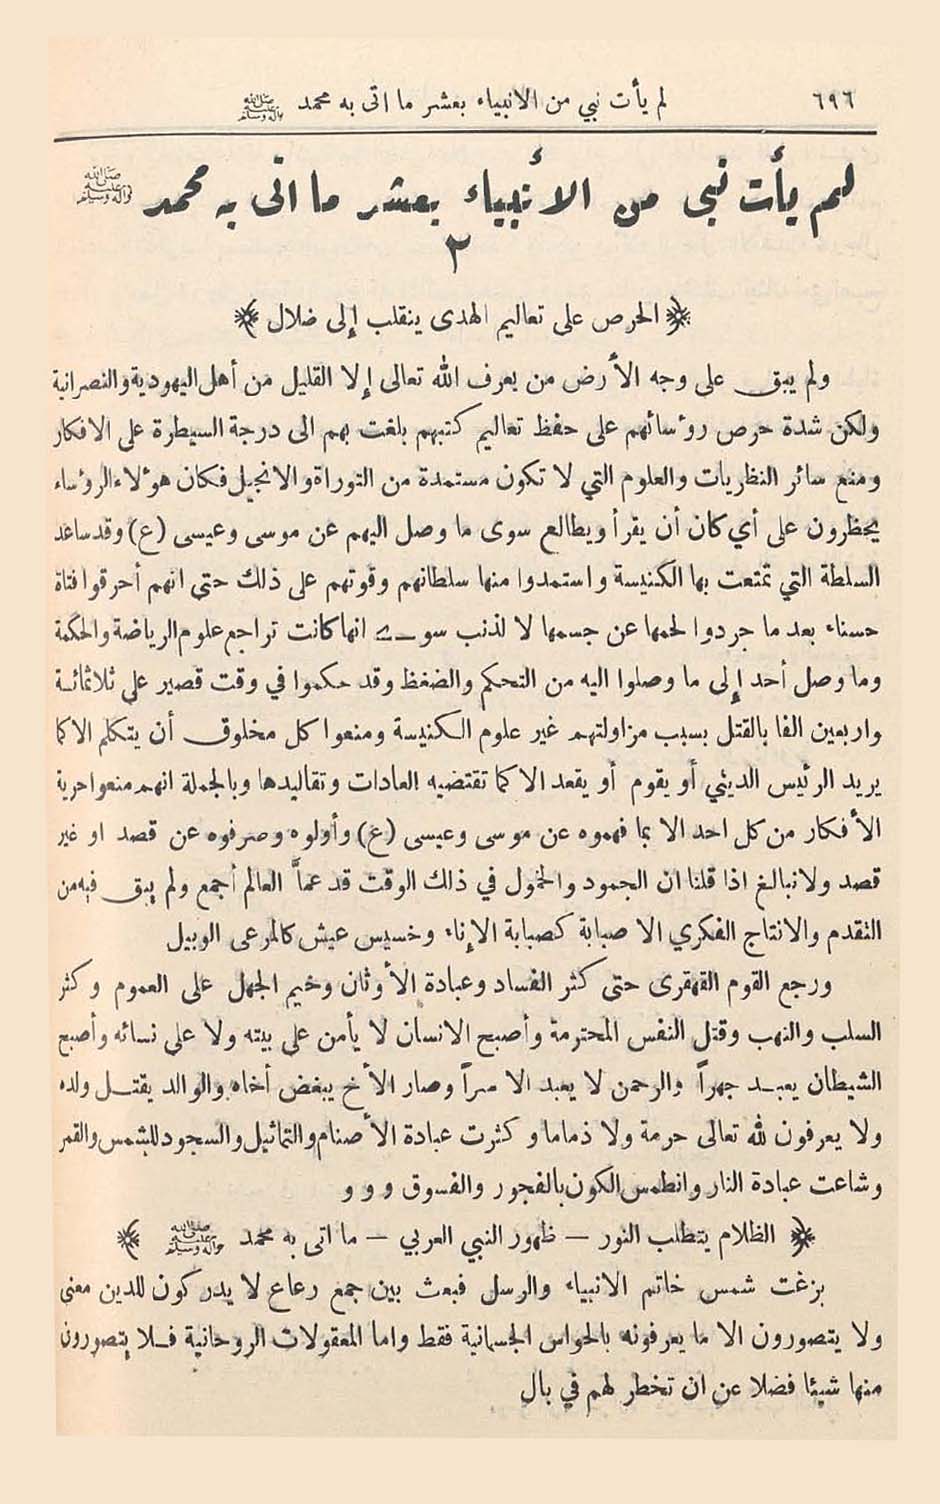 ٦٩٦ لم يأت نبي من الانبياء بعشر ما اتى به محمد صلى الله عليه واله وسلم
لم يأت نبي من الأنبياء بعشر ما اتى به محمد صلى الله عليه واله وسلم
٢
﴿ الحرص على تعاليم الهدى ينقلب إلى ضلال ﴾
ولم يبق على وجه الأرض من يعرف الله تعالى إلا القليل من أهل اليهودية والنصرانية
ولكن شدة حرص رؤسائهم على حفظ تعاليم كتبهم بلغت بهم الى درجة السيطرة على الافكار
ومنع سائر النظريات والعلوم التي لا تكون مستمدة من التوراة والانجيل فكان هؤلاء الرؤساء
يحظرون على أي كان أن يقرأ ويطالع سوى ما وصل اليهم عن موسى وعيسى (ع) وقد ساعد
السلطة التي تمتعت بها الكنيسة واستمدوا منها سلطانهم وقوتهم على ذلك حتى انهم أحرقوا فتاة
حسناء بعد ما جردوا لحمها عن جسمها لا لذنب سوى انها كانت تراجع علوم الرياضة والحكمة
وما وصل أحد إلى ما وصلوا اليه من التحكم والضغط وقد حكموا في وقت قصير على ثلاثمائة
واربعين الفا بالقتل بسبب مزاولتهم غير علوم الكنيسة ومنعوا كل مخلوق أن يتكلم الا كما
يريد الرئيس الديني أو يقوم أو يقعد الا كما تقتضيه العادات وتقاليدها وبالجملة انهم منعوا حرية
الأفكار من كل احد الا بما فهموه عن موسى وعيسى (ع) وأولوه وصرفوه عن قصد او غير
قصد ولا نبالغ اذا قلنا ان الجمود والخمول في ذلك الوقت قد عمّا العالم أجمع ولم يبق فيه من
التقدم والانتاج الفكري الا صبابة كصبابة الإناء وخسيس عيش كالمرعى الوبيل
ورجع القوم القهقرى حتى كثر الفساد وعبادة الأوثان وخيم الجهل على العموم وكثر
السلب والنهب وقتل النفس المحترمة وأصبح الانسان لا يأمن على بيته ولا على نسائه وأصبح
الشيطان يعبد جهراً والرحمن لا يعبد الا سراً وصار الأخ يبغض أخاه والوالد يقتل ولده
ولا يعرفون لله تعالى حرمة ولا ذماما وكثرت عبادة الأصنام والتماثيل والسجود للشمس والقمر
وشاعت عبادة النار وانطمس الكون بالفجور والفسوق و و و
﴿ الظلام يتطلب النور — ظهور النبي العربي — ما اتى به محمد صلى الله عليه واله وسلم ﴾
بزغت شمس خاتم الانبياء والرسل فبعث بين جمع رعاع لا يدركون للدين معنى
ولا يتصورون الا ما يعرفونه بالحواس الجسمانية فقط واما المعقولات الروحانية فلا يتصورون
منها شيئا فضلا عن ان تخطر لهم في بال